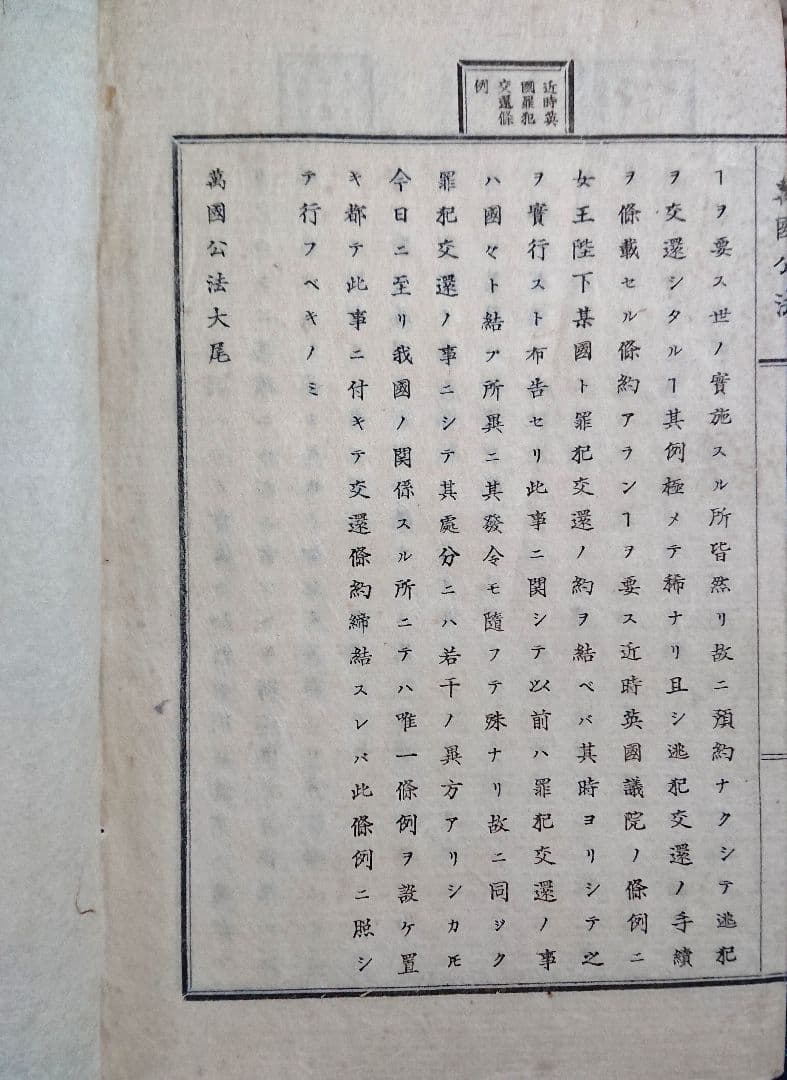 近時英
國罪犯
交還條
例
ヿヲ要ス世ノ實施スル所皆然リ故ニ預約ナクシテ逃犯
ヲ交還シタルヿ其例極メテ稀ナリ且シ逃犯交還ノ手續
ヲ條載セル條約アランヿヲ要ス近時英國議院ノ條例ニ
女王陛下某國ト罪犯交還ノ約ヲ結ベバ其時ヨリシテ之
ヲ實行スト布告セリ此事ニ関シテ以前ハ罪犯交還ノ事
ハ國々ト結ブ所異ニ其發令モ隨フテ殊ナリ故ニ同ジク
罪犯交還ノ事ニシテ其處分ニハ若干ノ異方アリシカ𪜈
今日ニ至リ我國ノ関係スル所ニテハ唯一條例ヲ設ケ置
キ都テ此事ニ付キテ交還條約締結スレバ此條例ニ照シ
テ行フベキノミ
萬國公法大尾
萬國公法